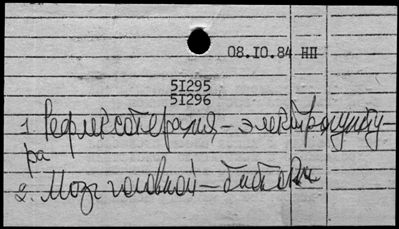 08.IO.84 НП
5I295
5I296
1 Рефлексотерапия – электропункту-
ра
2. Мозг головной –